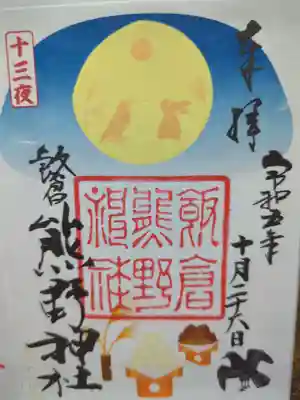 奉拝
令和五年
十月二十六日
飯倉
熊野
神社
飯倉 熊野神社
十三夜